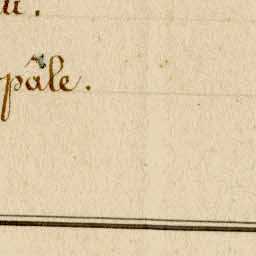 pâle.